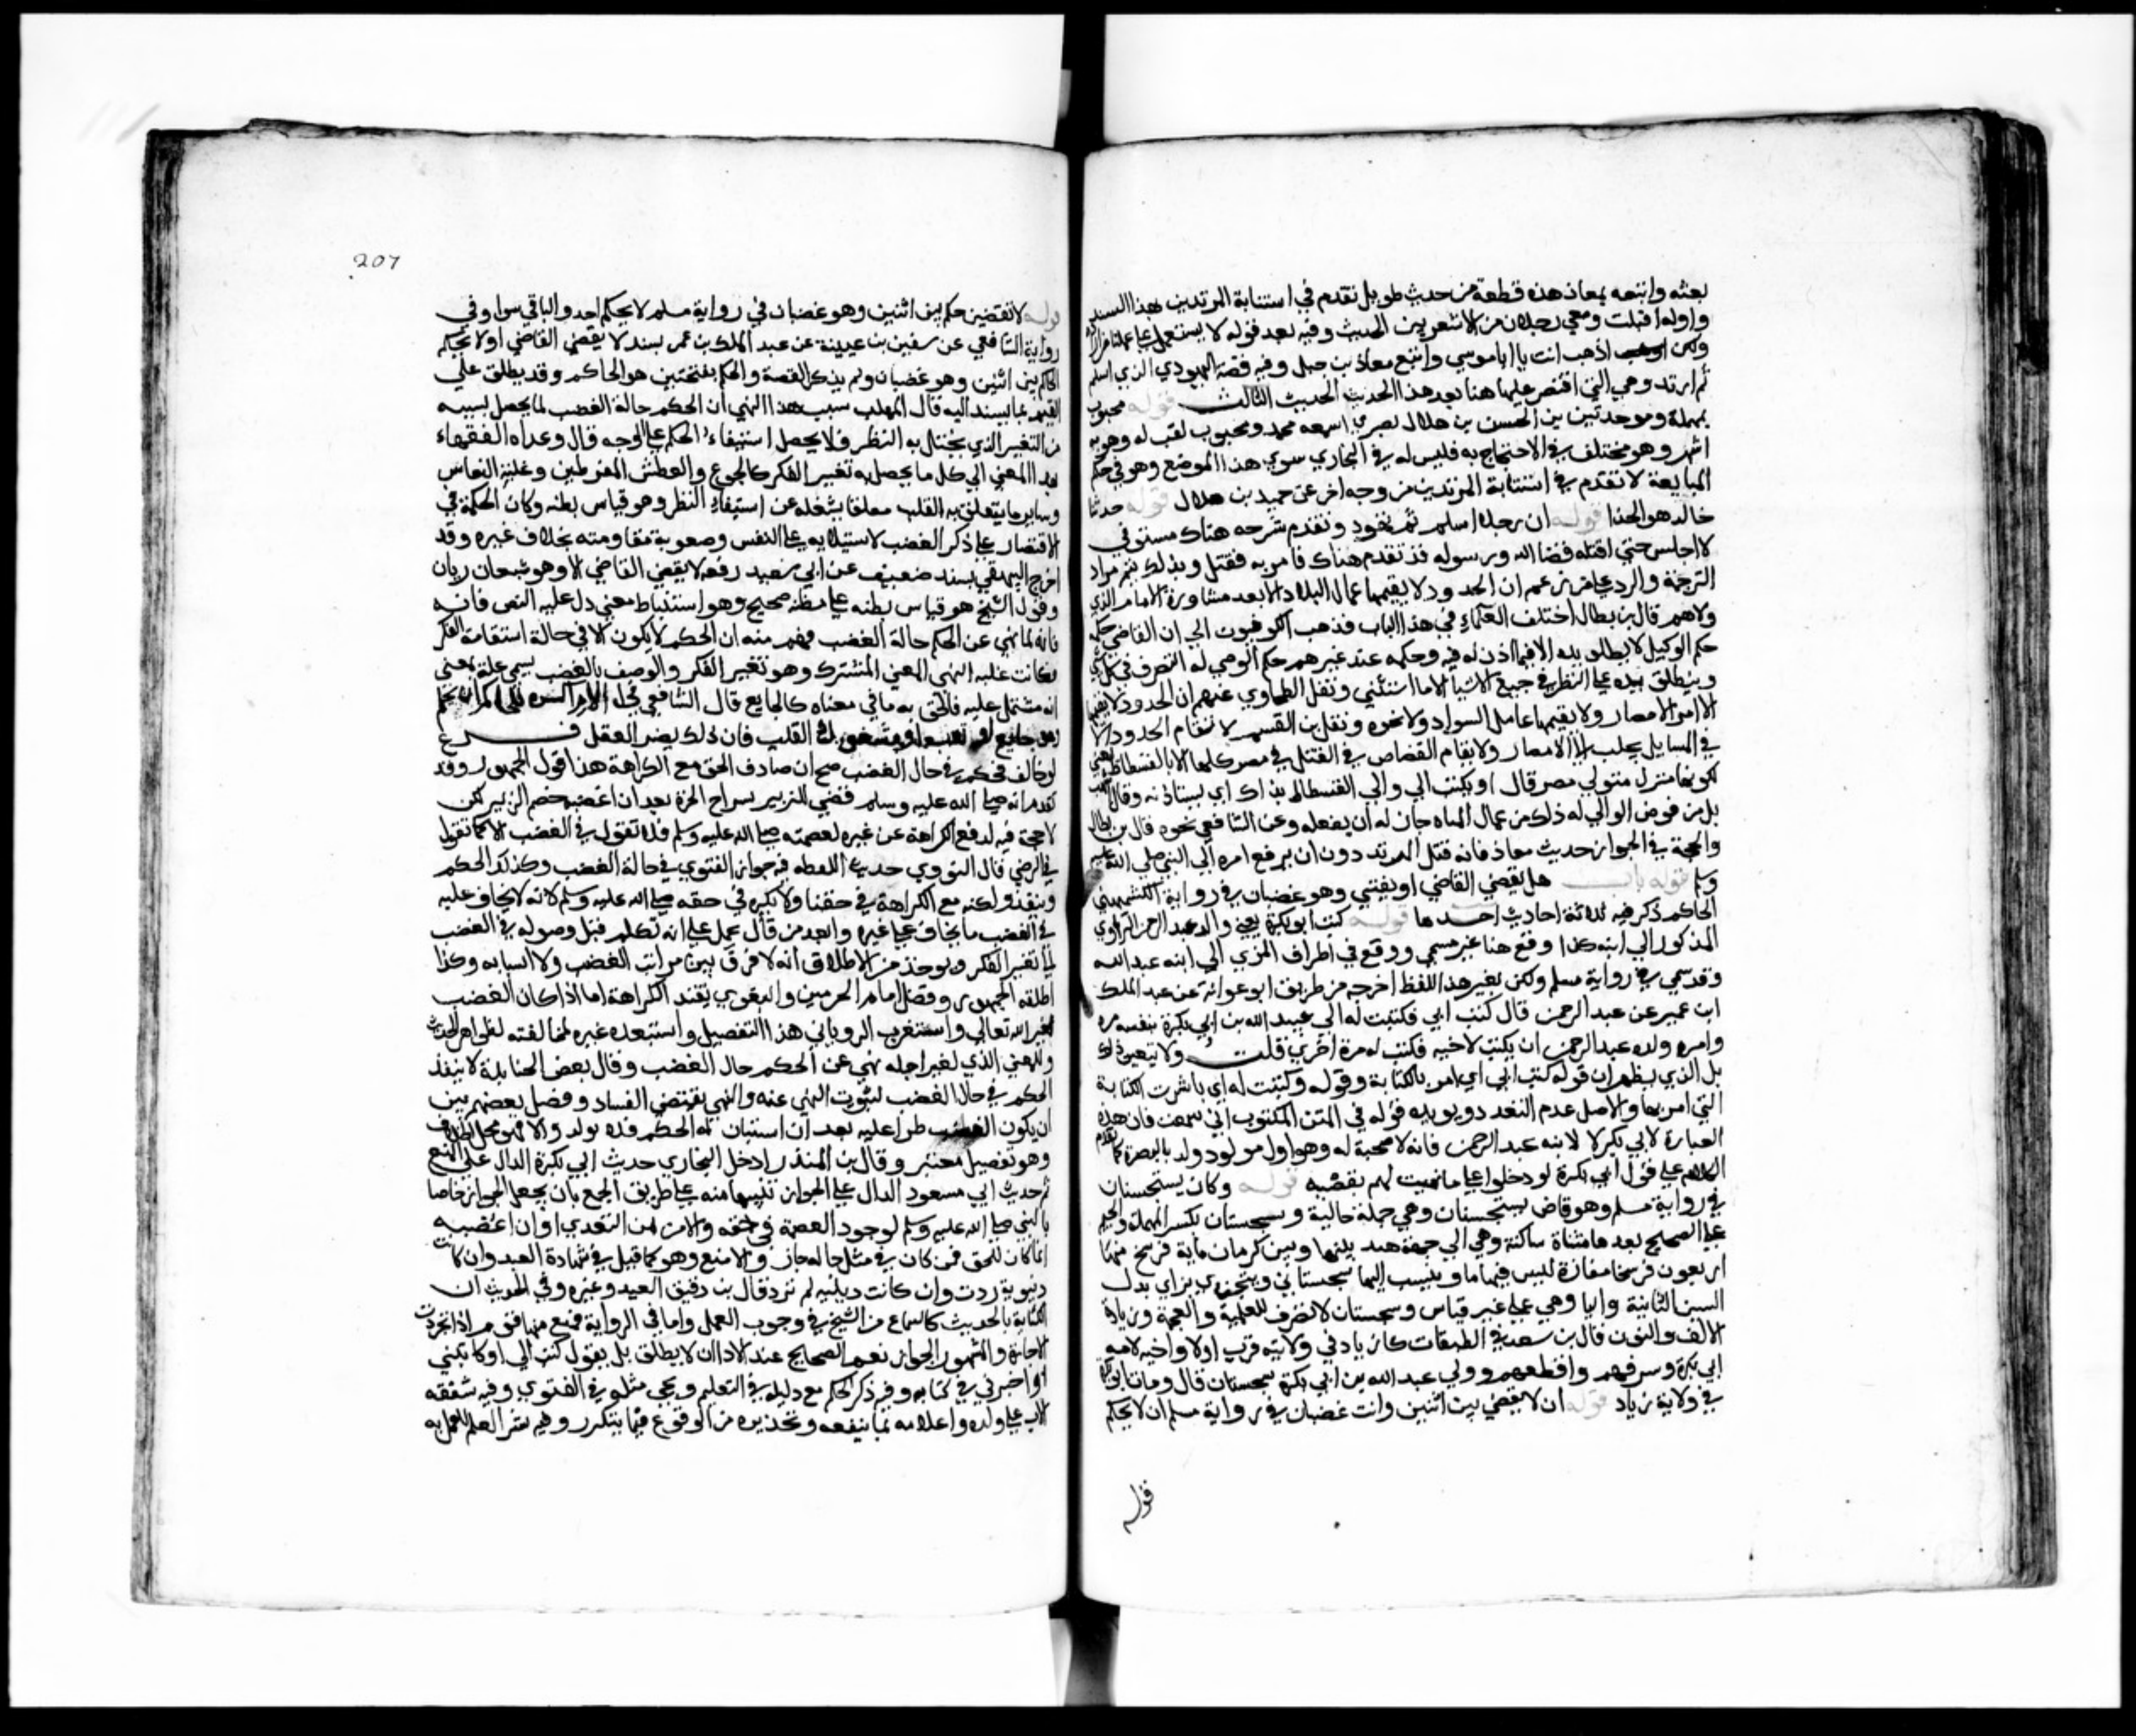 بعثه واتبعه بمعاذ هذه قطعة من حديث طويل تقدم في استتابة المرتدين بهذا السند
واوله اقبلت ومعي رجلان من الاشعريين الحديث وفيه بعد قوله لا نستعمل على عملنا من اراده
ولكن اذهب انت يا ابا موسى واتبع معاذ بن جبل وفيه قصة اليهودي الذي اسلم
ثم ارتد وهي التي اقتصر عليها هنا بعد هذا الحديث الحديث الثالث قوله محبوب
بمهملة وموحدتين بن الحسن بن هلال بصري اسمه محمد ومحبوب لقب له وهو به
اشهر وهو مختلف في الاحتجاج به فليس له في البخاري سوى هذا الموضع وهو في حكم
المتابعة لانه تقدم في استتابة المرتدين من وجه اخر عن حميد بن هلال قوله حدثنا
خالد هو الحذا قوله ان رجلا اسلم ثم تهود وتقدم شرحه هناك مستوفى
لا اجلس حتى اقتله قضا الله ورسوله قد تقدم هناك فامر به فقتل وبذلك يتم مراد
الترجمة والرد على من زعم ان الحدود لا يقيمها عمال البلاد الا بعد مشاورة الامام الذي
ولاهم قال بن بطال اختلف العلماء في هذا الباب فذهب الكوفيون الى ان القاضي حكمه
حكم الوكيل لا يطلق يده الا فيما اذن له فيه وحكمه عند غيرهم حكم الوصي له التصرف في كل شي
وينطلق يده على النظر في جميع الاشيا الا ما استثنى ونقل الطحاوي عنهم ان الحدود لا يقيمها
الا امرا الامصار ولا يقيمها عامل السواد ولا نحوه ونقل بن القسم لا تقام الحدود الا
في المسايل يجلب الى الامصار ولا يقام القصاص في القتل في مصر كلها الا بالفسطاط يعني
لكونها منزل متولي مصر قال او يكتب الى والي الفسطاط بذاك اي يستاذنه وقال اشهب
بل من فوض الوالي له ذلك من عمال المياه جاز له ان يفعله وعن الشافعي نحوه قال بن بطال
والحجة في الجواز حديث معاذ فانه قتل المرتد دون ان يرفع امره الى النبي صلى الله عليه
وسلم قوله باب هل يقضي القاضي او يفتي وهو غضبان في رواية الكشميهني
الحاكم ذكر فيه ثلاثة احاديث احدها قوله كتب ابو بكرة يعني والد عبد الرحمن الراوي
المذكور الى ابنه كذا وقع هنا غير مسمى ووقع في اطراف المزي الى ابنه عبد الله
وقد سمي في رواية مسلم ولكن بغير هذا اللفظ اخرجه من طريق ابو عوانة عن عبد الملك
ابن عمير عن عبد الرحمن قال كتب ابي وكتبت له الى عبيد الله بن ابي بكرة بنفسه مرة
وامر ولده عبد الرحمن ان يكتب لاخيه فكتب له مرة اخرى قلت ولا يتعين ذلك
بل الذي يظهر ان قوله كتب ابي اي امر بالكتابة وقوله وكتبت له اي باشرت الكتابة
التي امر بها والاصل عدم التعدد ويويده قوله في المتن المكتوب اني سمعت فان هذه
العبارة لابي بكر لا لابنه عبد الرحمن فانه لا صحبة له وهو اول مولود ولد بالبصرة كما تقدم
الكلام على قول ابي بكرة لو دخلوا علي ما بهشت لهم بقصبة قوله وكان بسجستان
في رواية مسلم وهو قاض بسجستان وهي جملة حالية وسجستان بكسر المهملة والجيم
على الصحيح بعدها مثناة ساكنة وهي الى جهة هند بينها وبين كرمان ماية فرسخ منها
اربعون فرسخا مفازة ليس فيها ما وينسب اليها سجستاني وسجزي بزاي بدل
السين الثانية واليا وهي على غير قياس وسجستان لا تصرف للعلمية والعجمة وزيادة
الالف والنون قال بن سعد في الطبقات كان زياد في ولايته قرب اولاد اخيه لامه
ابي بكرة وشرفهم واقطعهم وولى عبد الله بن ابي بكرة سجستان قال ومات ابو بكرة
في ولاية زياد قوله ان لا تقضي بين اثنين وانت غضبان في رواية مسلم ان لا يحكم
قوله
207
قوله لا تقضين حكم بين اثنين وهو غضبان في رواية مسلم لا يحكم احد والباقي سوا وفي
رواية الشافعي عن سفين بن عيينة عن عبد الملك بن عمير بسنده لا يقضي القاضي او لا يحكم
الحاكم بين اثنين وهو غضبان ولم يذكر القصة والحكم بفتحتين هو الحاكم وقد يطلق على
القيم بما يسند اليه قال المهلب سبب هذا النهي ان الحكم حالة الغضب لما يحصل بسببه
من التغير الذي يختل به النظر فلا يحصل استيفاء الحكم على الوجه قال وعداه الفقهاء
بهذا المعنى الى كل ما يحصل به تغير الفكر كالجوع والعطش المفرطين وغلبة النعاس
وساير ما يتعلق به القلب تعلقا يشغله عن استيفاء النظر وهو قياس مظنة وكان الحكمة في
الاقتصار على ذكر الغضب لاستيلايه على النفس وصعوبة مقاومته بخلاف غيره وقد
اخرج البيهقي بسند ضعيف عن ابي سعيد رفعه لا يقضي القاضي الا وهو شبعان ريان
وقول الشيخ هو قياس مظنة على مظنة صحيح وهو استنباط معنى دل عليه النص فانه
فانه لما نهى عن الحكم حالة الغضب فهم منه ان الحكم لا يكون الا في حالة استقامة الفكر
فكانت علة النهي المعنى المشترك وهو تغير الفكر والوصف بالغضب يسمى علة بمعنى
انه مشتمل عليه فالحق به ما في معناه كالجايع قال الشافعي في الام اكره للحاكم ان يحكم
وهو جايع او تعب او مشغول القلب فان ذلك يضر العقل فـــــرع
لو خالف فحكم في حال الغضب صح ان صادف الحق مع الكراهة هذا قول الجمهور وقد
تقدم انه صلى الله عليه وسلم قضى للزبير بسراح الحرة بعد ان اغضبه خصم الزبير لكن
لا حجة فيه لرفع الكراهة عن غيره لعصمته صلى الله عليه وسلم فلا تقول في الغضب الا كما تقول
في الرضى قال النووي حديث اللقطه فيه جواز الفتوى في حالة الغضب وكذلك الحكم
وينفذ ولكنه مع الكراهة في حقنا ولا يكره في حقه صلى الله عليه وسلم لانه لا يخاف عليه
في الغضب ما يخاف على غيره وابعد من قال عمل على انه تكلم قبل وصوله في الغضب
الى تغير الفكر ويوخذ من الاطلاق انه لا فرق بين مراتب الغضب ولا اسبابه وكذا
اطلقه الجمهور وفصل امام الحرمين والبغوي بقيد الكراهة اما اذا كان الغضب
لغير الله تعالى واستغرب الروياني هذا التفصيل واستبعده غيره لمخالفته لظواهر الحديث
وللمعنى الذي لغير اجله نهى عن الحكم حال الغضب وقال بعض الحنابلة لا ينفذ
الحكم في حال الغضب لثبوت النهي عنه والنهي يقتضي الفساد وفصل بعضهم بين
ان يكون الغضب طرا عليه بعد ان استبان له الحكم فلا يوثر والا فهو محل الخلاف
وهو تفصيل معتبر وقال بن المنذر ادخل البخاري حديث ابي بكرة الدال على المنع
ثم حديث ابي مسعود الدال على الجواز تنبيها منه على طريق الجمع بان يجعل الجواز خاصا
بالنبي صلى الله عليه وسلم لوجود العصمة في حقه والامن من التعدي او ان اغضبه
انما كان للحق فمن كان في مثل حاله جاز والا منع وهو كما قيل في شهادة العدو ان كانت
دنيوية ردت وان كانت دينيه لم ترد قال بن دقيق العيد وغيره وفي الحديث ان
الكتابة بالحديث كالسماع من الشيخ في وجوب العمل واما في الرواية فمنع منها قوم اذا تجردت
الاجازة والمشهور الجواز نعم الصحيح عند الادا ان لا يطلق بل يقول كتب الي او كاتبني
او اخبرني في كتابه وفيه ذكر الحكم مع دليله في التعليم ويجي مثله في الفتوى وفيه شفقه
الاب على ولده واعلامه بما ينفعه وتحذيره من الوقوع فيما يتكرر وفيه نشر العلم للعمل به